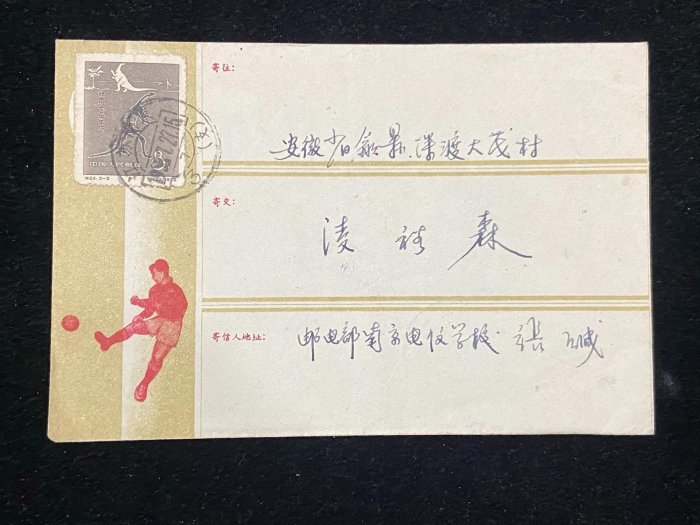 中国人民邮政
8
寄往：
安徽省歙县.深渡大茂村
寄交：
凌裕森
寄信人地址：
邮电部南京电信学校 張 诚